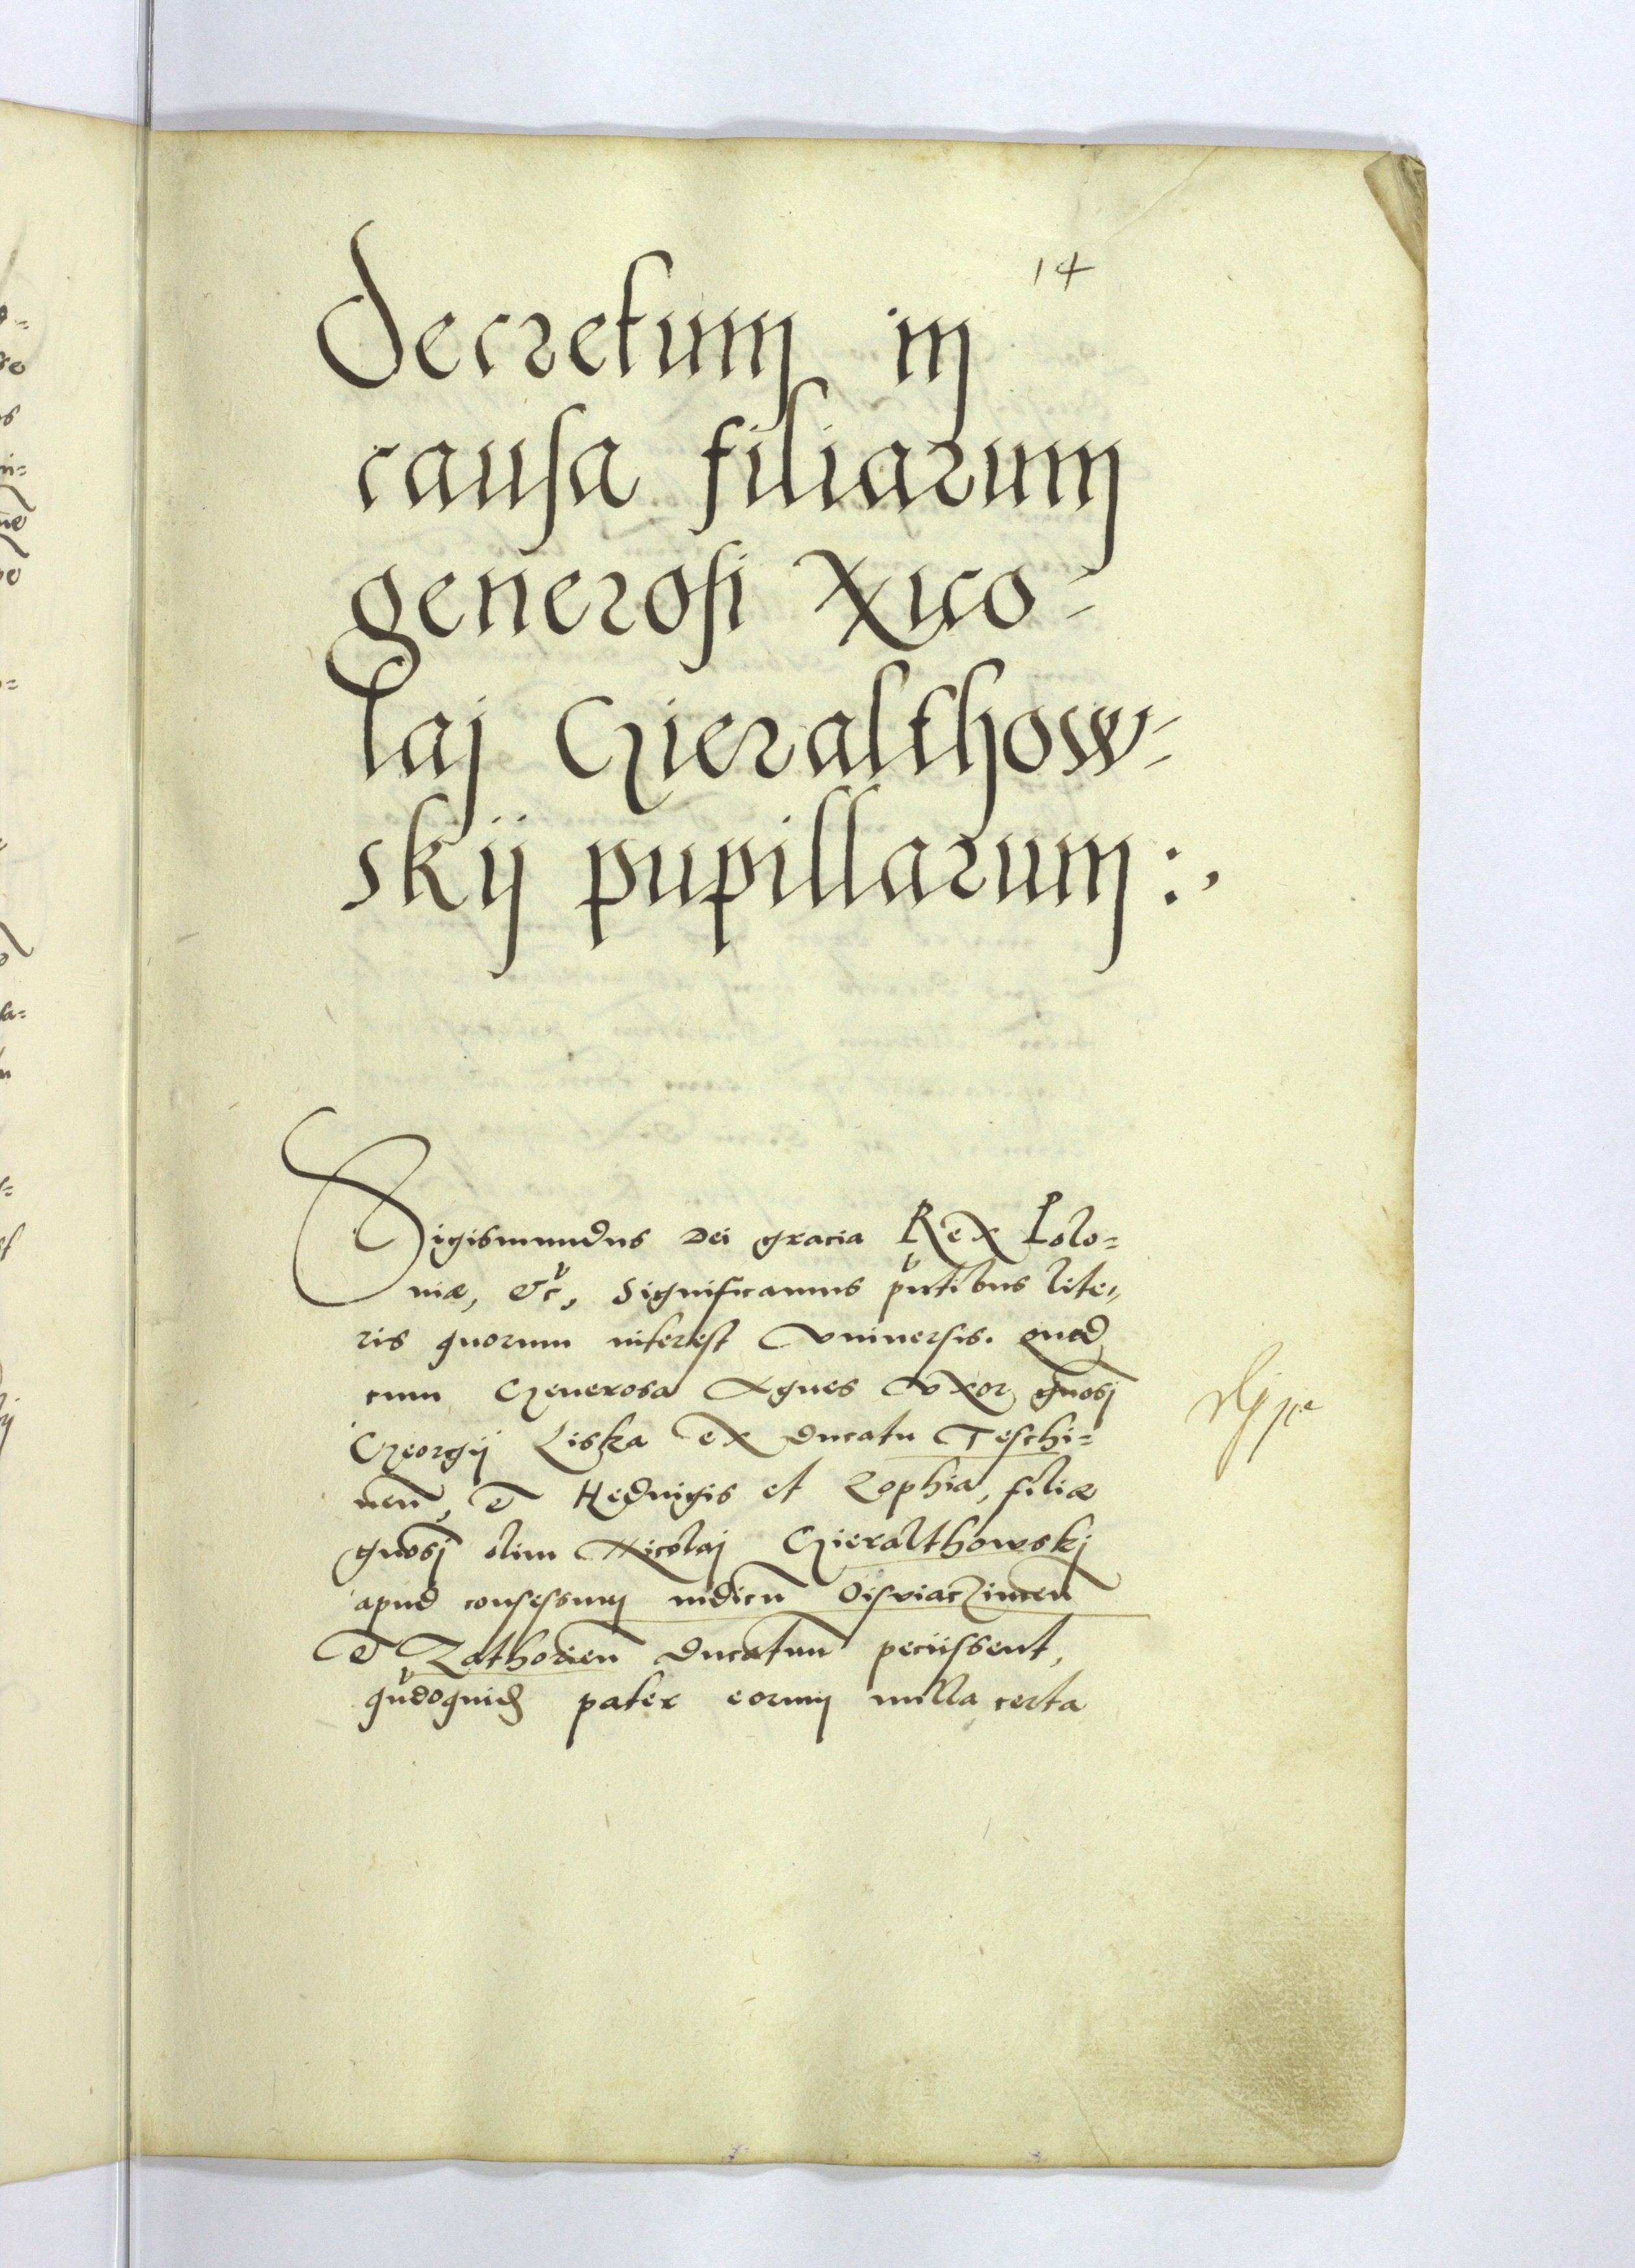 14
Decretum in
causa filiarum
generosi Nico=
laj Gieralthow=
skij pupillarum :,
Sigismundus Dei gracia Rex Polo=
niæ, &c, Significamus pntibus lite„
ris quorum interest vniuersis. Quod
cum Generosa Agnes vxor gnosj
Georgij Liska ex ducatu Teschi=
nen, et Heduigis et Zophia, filiæ
gnosj olim Nicolaj Gieralthowskj
apud consessum iudicu Osviaczimen
et Zathorien ducatuu peciissent,
qudoquid pater earum nulla certa